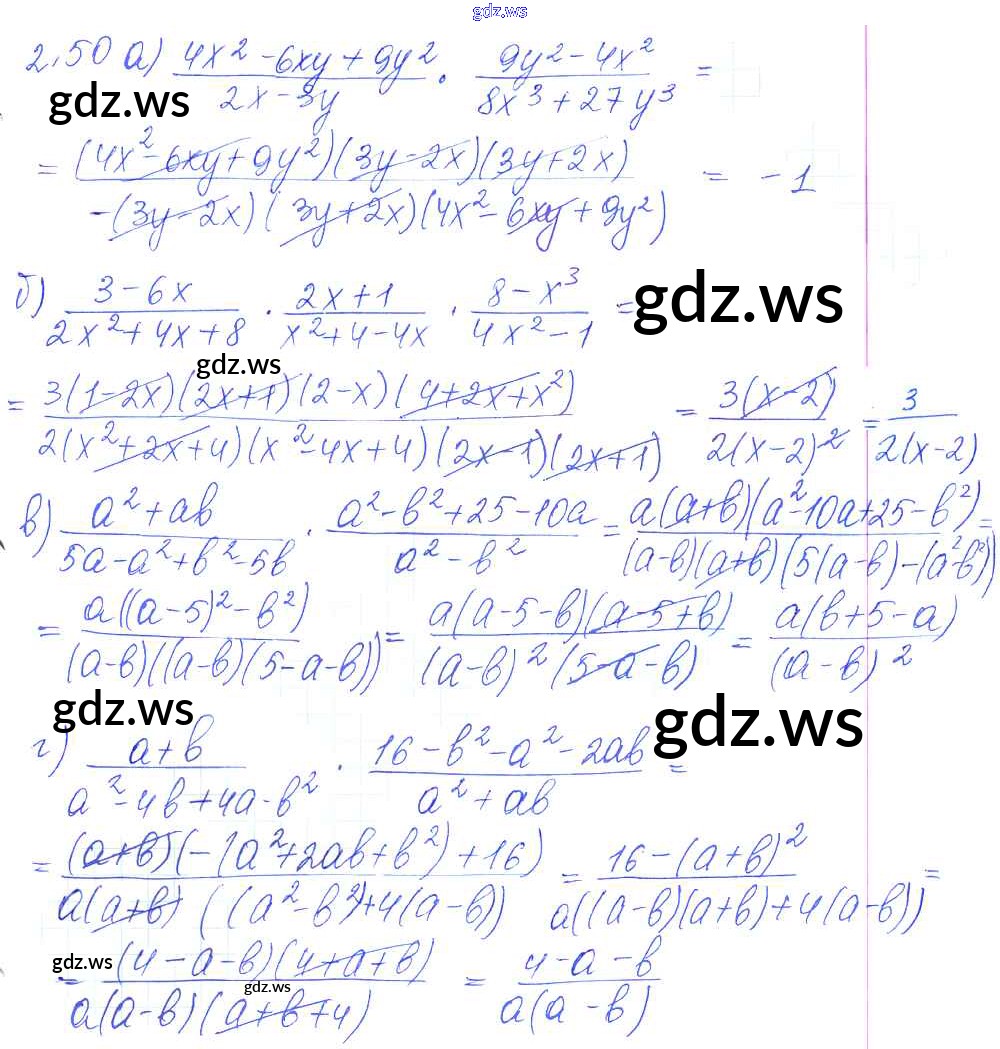 gdz.ws
2.50 а) (4x² - 6xy + 9y²)/(2x - 3y) · (9y² - 4x²)/(8x³ + 27y³) =
gdz.ws
= (4x² - 6xy + 9y²)(3y - 2x)(3y + 2x) / -(3y - 2x)(3y + 2x)(4x² - 6xy + 9y²) = -1
б) (3 - 6x)/(2x² + 4x + 8) · (2x + 1)/(x² + 4 - 4x) · (8 - x³)/(4x² - 1) =
gdz.ws
gdz.ws
= 3(1 - 2x)(2x + 1)(2 - x)(4 + 2x + x²) / 2(x² + 2x + 4)(x² - 4x + 4)(2x - 1)(2x + 1) = 3(x - 2) / 2(x - 2)² = 3 / 2(x - 2)
в) (a² + ab)/(5a - a² + b² - 5b) · (a² - b² + 25 - 10a)/(a² - b²) = a(a + b)(a² - 10a + 25 - b²) / (a - b)(a + b)(5(a - b) - (a² - b²)) =
= a((a - 5)² - b²) / (a - b)((a - b)(5 - a - b)) = a(a - 5 - b)(a - 5 + b) / (a - b)²(5 - a - b) = a(b + 5 - a) / (a - b)²
gdz.ws
gdz.ws
г) (a + b)/(a² - 4b + 4a - b²) · (16 - b² - a² - 2ab)/(a² + ab) =
= (a + b)(-(a² + 2ab + b²) + 16) / a(a + b)((a² - b²) + 4(a - b)) = 16 - (a + b)² / a((a - b)(a + b) + 4(a - b)) =
gdz.ws
= (4 - a - b)(4 + a + b) / a(a - b)(a + b + 4) = 4 - a - b / a(a - b)
gdz.ws